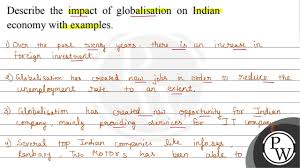 Describe the impact of globalisation on Indian
economy with examples.
1) Over the past twenty years, there is an increase in
foreign investment.
2) Globalisation has created new jobs in order to reduce the
unemployment rate to an extent.
3) Globalisation has created new opportunity for Indian
company mainly providing services for IT company
4) Several top Indian companies like infosys
ranbaxy, Tata Motors has been able to
PW